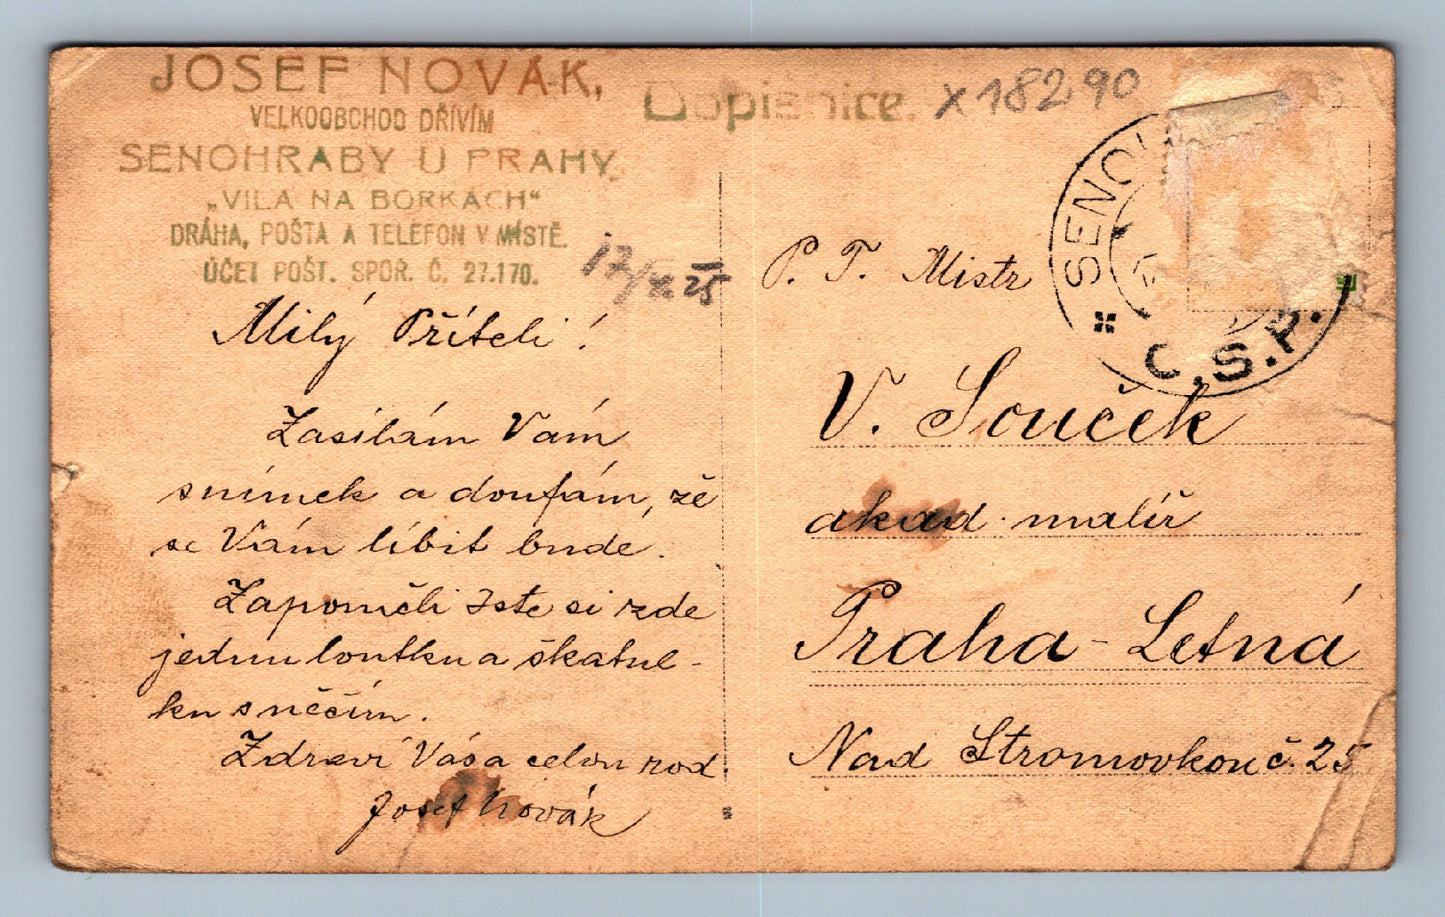 JOSEF NOVÁK,
VELKOOBCHOD DŘÍVÍM
SENOHRABY U PRAHY,
„VILA NA BORKÁCH“
DRÁHA, POŠTA A TELEFON V MÍSTĚ.
ÚČET POŠT. SPOŘ. Č. 27.170.
17/XI 25
Milý Příteli!
Zasílám Vám
snímek a doufám, žě
se Vám líbit bude.
Zapoměli Jste si zde
jednu loutku a škatul-
ku s něčím.
Zdraví Vás a celou rod.
Josef Novák
Dopisnice.
x 182 90
SENOH
C.S.P.
P. T. Mistr
V. Souček
akad. malíř
Praha - Letná
Nad Stromovkou č. 25